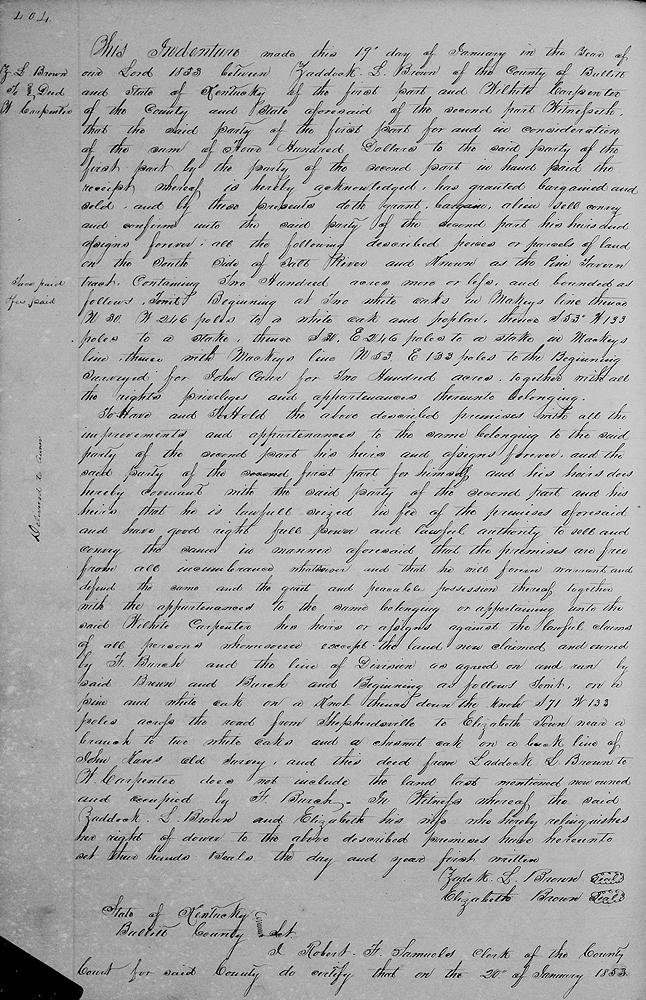 404.
Z. L. Brown
To } Deed
W Carpenter
This Indenture made this 19th day of January in the Year of
our Lord 1853 between Zaddock. L. Brown of the County of Bullitt
and State of Kentucky of the first part and Wilhite Carpenter
of the County and State aforesaid of the second part Witnesseth,
that the said party of the first part for and in consideration
of the sum of Four Hundred Dollars to the said party of the
first part by the party of the second part in hand paid the
receipt whereof is hereby acknowledged, has granted bargained and
sold, and by these presents doth grant, bargain, alien sell convey
and confirm unto the said party of the second part his heirs and
assigns forever, all the following described peices or parcels of land
on the South Side of Salt River and Known as the Pine Tavern
tract, Containing Two Hundred acres more or less, and bounded as
follows, Towit, Beginning at Two white oaks in Mackeys line thence
N 30. W 246 poles to a white oak and poplar, thence S 53° W 133
poles to a stake, thence S 30. E 246 poles to a stake in Mackeys
line thence with Mackeys line N 53 E 133 poles to the Beginning
Surveyed for John Carr for Two Hundred acres. together with all
the rights priveliges and appurtenances thereunto belonging.
To Have and To Hold the above described premises with all the
improvements and appurtenances to the same belonging to the said
party of the second part his heirs and assigns forever, and the
said party of the first part for himself and his heirs does
hereby covenant with the said party of the second part and his
heirs that he is lawfull seized in fee of the premises aforesaid
and have good right full power and lawful authority to sell and
convey the same in manner aforesaid that the premises are free
from all incumbrance whatsoever and that he will forever warrant and
defend the same and the quiet and peacable possession thereof together
with the appurtenances to the same belonging or appertaining unto the
said Wilhite Carpenter his heirs or assigns against the lawful claims
of all persons whomsoever except the land now claimed and owned
by F. Burch and the line of Division as agreed on and run by
said Brown and Burch and Beginning as follows Towit, on a
pine and white oak on a Knob thence down the Knob S 71 W 133
poles across the road from Shepherdsville to Elizabeth Town near a
branch to two white oaks and a chesnut oak on a back line of
John Carrs old survey, and this deed from Zaddock L Brown to
W Carpenter does not include the land last mentioned now owned
and occupied by F. Burch. In Witness whereof the said
Zaddock. L. Brown and Elizabeth his wife who hereby relinquishes
her right of dower to the above described premises have hereunto
set their hands & seals the day and year first written
Zadok. L. Brown Seal
Elizabeth Brown Seal
Tax paid
Fee paid
Delivered to
State of Kentucky
Bullitt County Sct.
I Robert. F. Samuels Clerk of the County
Court for said County do certify that on the 20th of January 1853